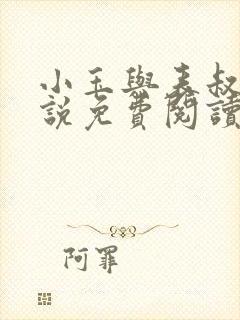 小玉與表叔
說免費閱讀
阿罪